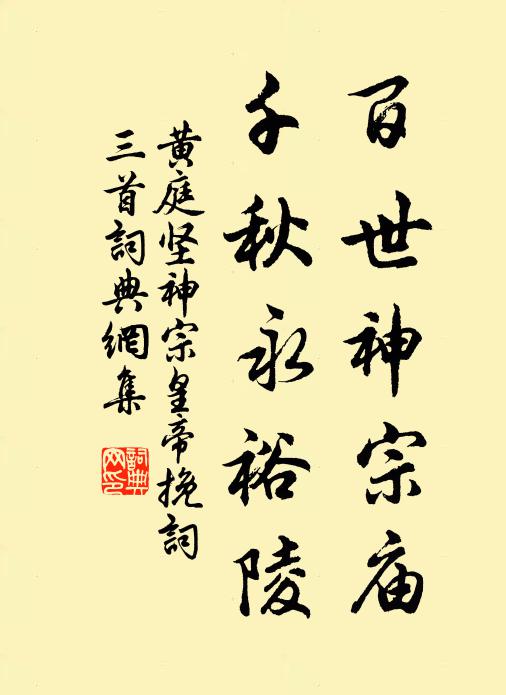 百世神宗庙
千秋永裕陵
黄庭坚神宗皇帝挽詞
三首詞典網集
詞典
网印